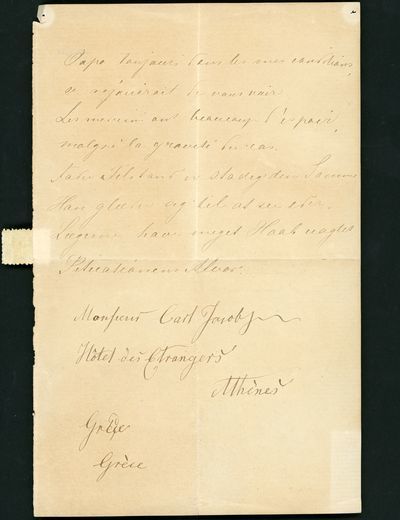 Papa toujours dans les mêmes conditions,
se réjouirait de vous voir
Les médecins ont beaucoup d'espoir,
malgré la gravité du cas.
Fader Tilstand er stadig den Samme
Han glæder sig til at see eder.
Lægerne have meget Haab uagtet
Situationens Alvor.
Monsieur Carl Jacobs
Hôtel des Etrangers
Athènes
Grèce
Grèce